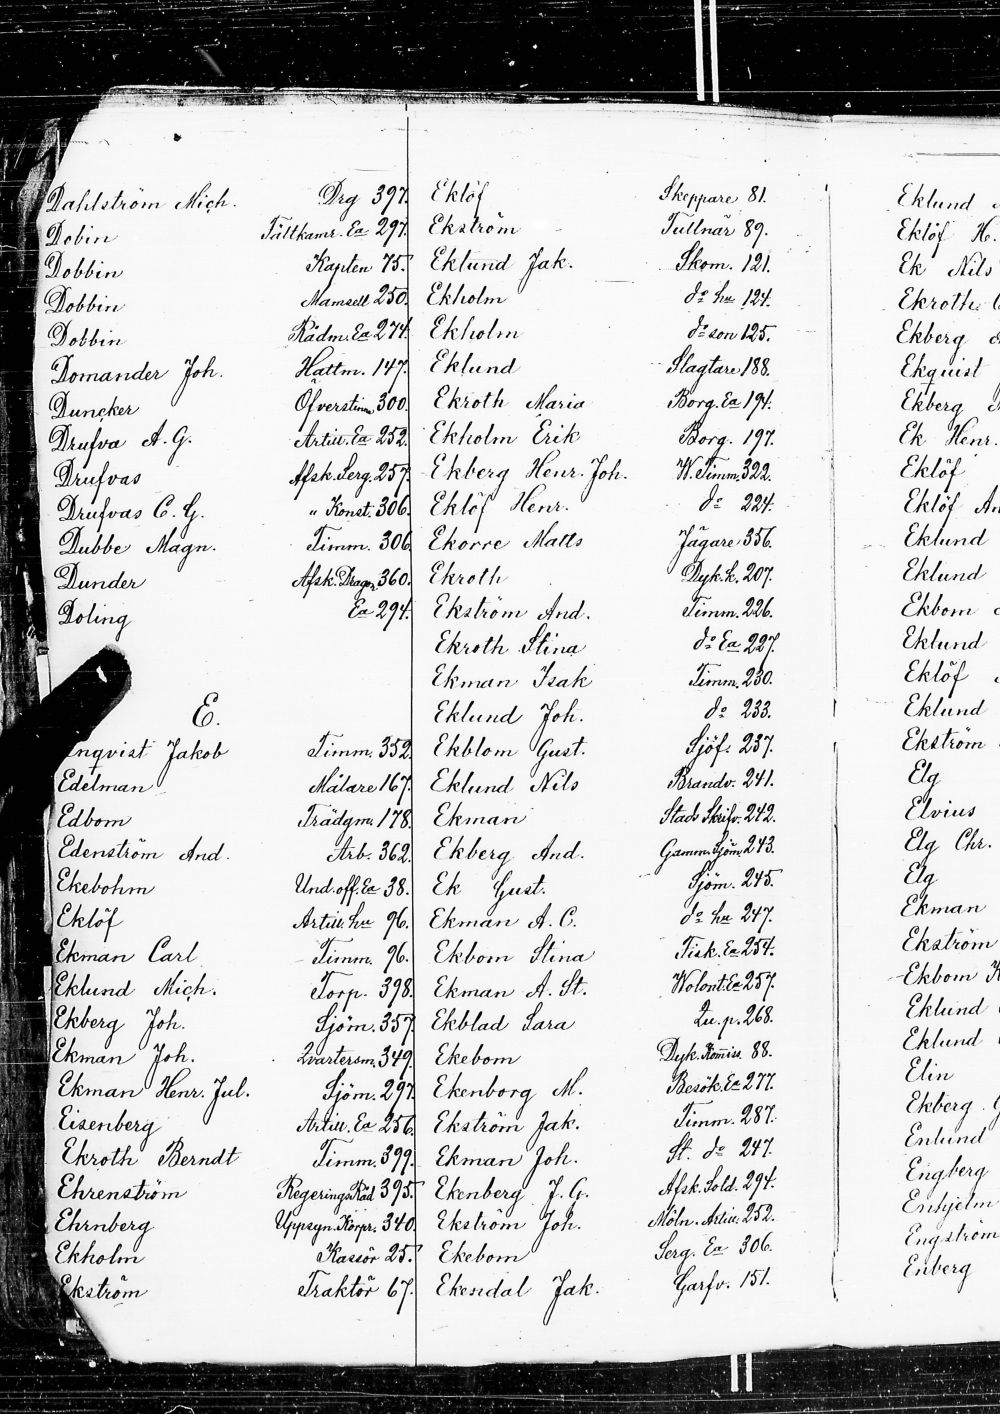 Dahlström Mich. Drg 397.
Dobin Fältkamr. Ea 297.
Dobbin Kapten 75.
Dobbin Mamsell 250.
Dobbin Rådm. Ea 274.
Domander Joh. Hattm. 147.
Duncker Öfverstinn. 300.
Drufva A. G. Artill. Ea 252.
Drufvas Afsk. Serg. 257.
Drufvas C. G. " Konst. 306.
Dubbe Magn. Timm. 306
Dunder Afsk. Dragon 360.
Doling Ea 294.
E.
nqvist Jakob Timm. 352.
Edelman Målare 167.
Edbom Trädgm. 178.
Edenström And. Arb. 362.
Ekebohm Und. off. Ea 38.
Eklöf Artill. hu 96.
Ekman Carl Timm. 96.
Eklund Mich. Torp. 398.
Ekberg Joh. Sjöm. 357.
Ekman Joh. Qvartersm. 349.
Ekman Henr. Jul. Sjöm. 297.
Eisenberg Artill. Ea 256.
Ekroth Berndt Timm. 399.
Ehrenström Regerings Råd 395.
Ehrnberg Uppsyn. Korpr. 340.
Ekholm Kassör 25.
Ekström Traktör 67.
Eklöf Skeppare 81.
Ekström Tullnär 89.
Eklund Jak. Skom. 121.
Ekholm do hu 124.
Ekholm do son 125.
Eklund Slagtare 188.
Ekroth Maria Borg. Ea 194.
Ekholm Erik Borg. 197.
Ekberg Henr. Joh. W. Timm. 322.
Eklöf Henr. do 224.
Ekorre Matts Jägare 356.
Ekroth Dyk. k. 207.
Ekström And. Timm. 226.
Ekroth Stina do Ea 227.
Ekman Isak Timm. 230.
Eklund Joh. do 233.
Ekblom Gust. Sjöf. 237.
Eklund Nils Brandv. 241.
Ekman Stads Skrifv. 242.
Ekberg And. Gamm. Sjöm. 243.
Ek Gust. Sjöm. 245.
Ekman A. C. do hu 247.
Ekbom Stina Fisk. Ea 254.
Ekman A. St. Wolont. Ea 257.
Ekblad Sara Qu. p. 268.
Ekebom Dyk. Komiss. 88.
Ekenborg M. Besök. Ea 277.
Ekström Jak. Timm. 287.
Ekman Joh. St. do 247.
Ekenberg J. G. Afsk. Sold. 294.
Ekström Joh. Möln. Artill. 252.
Ekebom Serg. Ea 306.
Ekendal Jak. Garfv. 151.
Eklund
Eklöf H.
Ek Nils
Ekroth
Ekberg
Ekquist
Ekberg
Ek Henr.
Eklöf
Eklöf An
Eklund
Eklund
Ekbom
Eklund
Eklöf
Eklund
Ekström
Elg
Elvius
Elg Chr.
Elg
Ekman
Ekström
Ekbom K
Eklund
Eklund
Elin
Ekberg
Enlund
Engberg
Enhjelm
Engström
Enberg